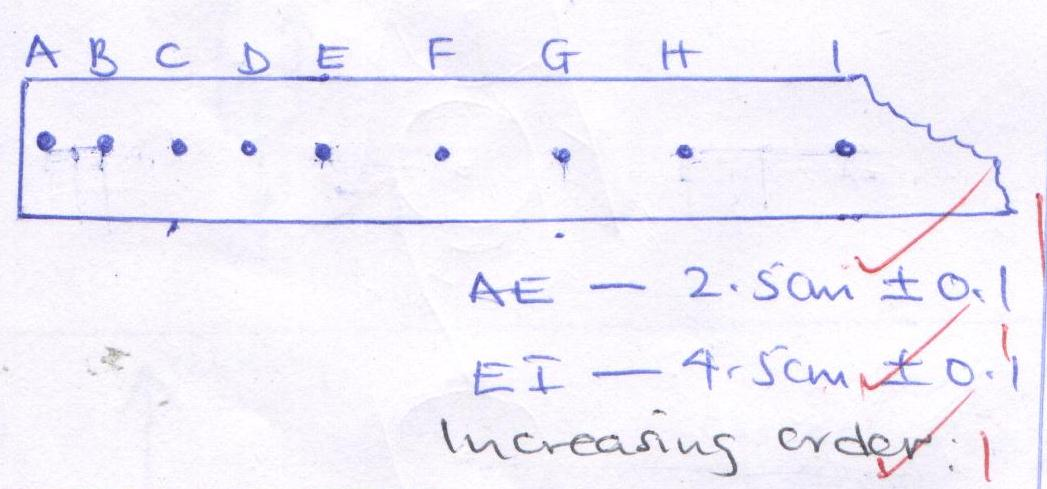 A B C D E F G H I
AE — 2.5cm ± 0.1
1
EI — 4.5cm ± 0.1
Increasing order. 1